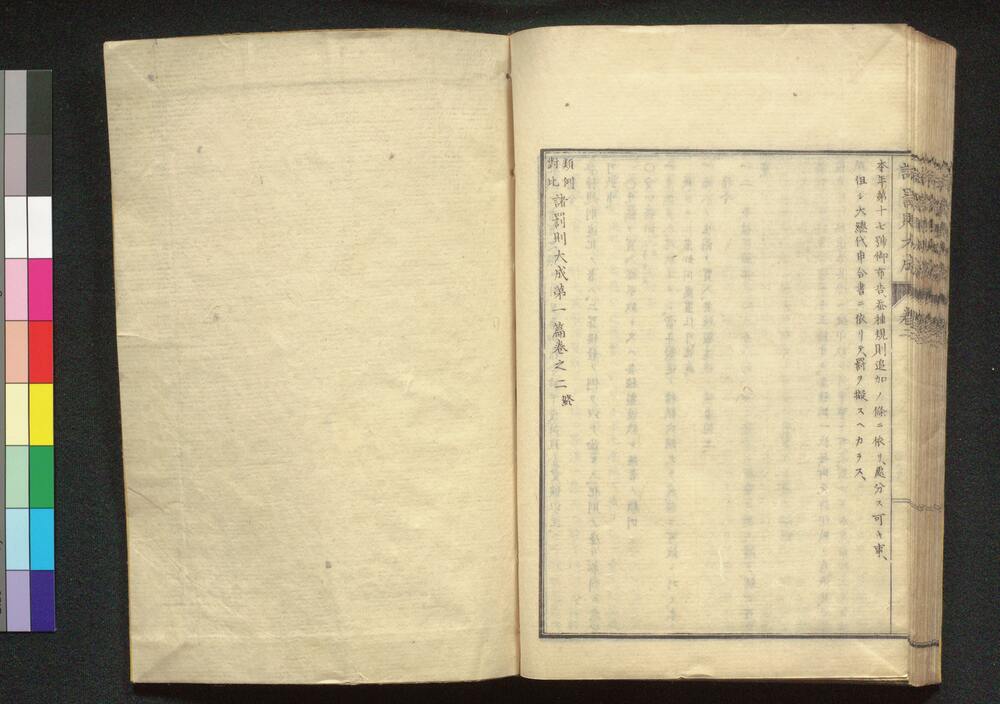 本年第十七號御布告蚕種規則追加ノ條ニ依リ處分ス可キ事、
但シ大總代申合書ニ依リテ罰ヲ擬スヘカラス、
類例
對比
諸罰則大成第一篇卷之二終
諸罰則大成 卷二